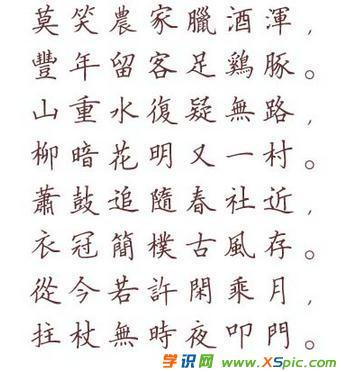 莫笑農家臘酒渾,
豐年留客足鷄豚。
山重水復疑無路,
柳暗花明又一村。
蕭鼓追隨春社近,
衣冠簡樸古風存。
從今若許閑乘月,
拄杖無時夜叩門。
学识网 www.XSpic.com